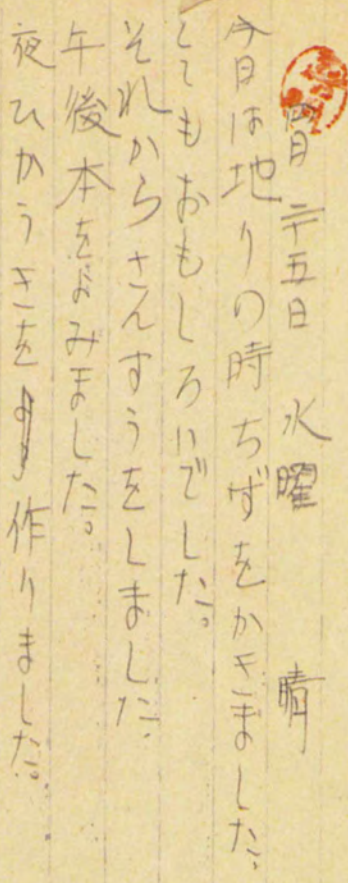 四月二十五日 水曜 晴
今日は地りの時ちずをかきました。
とてもおもしろいでした。
それからさんすうをしました。
午後本をよみました。
夜ひかうきを作りました。